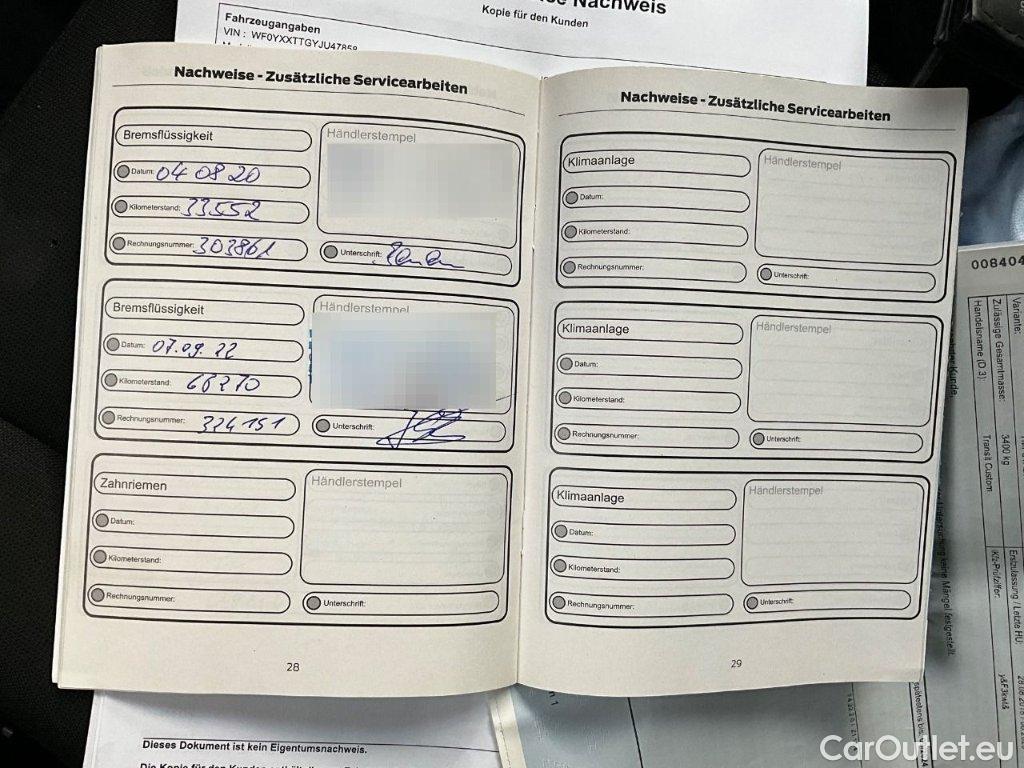 Nachweis
Kopie für den Kunden
Fahrzeugangaben
VIN : WF0YXXTTGYJU47858
Nachweise - Zusätzliche Servicearbeiten
Bremsflüssigkeit
Händlerstempel
Datum: 04 08 20
Kilometerstand: 33552
Rechnungsnummer: 303861
Unterschrift:
Bremsflüssigkeit
Händlerstempel
Datum: 07.09.22
Kilometerstand: 68270
Rechnungsnummer: 324151
Unterschrift:
Zahnriemen
Händlerstempel
Datum:
Kilometerstand:
Rechnungsnummer:
Unterschrift:
28
Nachweise - Zusätzliche Servicearbeiten
Klimaanlage
Händlerstempel
Datum:
Kilometerstand:
Rechnungsnummer:
Unterschrift:
Klimaanlage
Händlerstempel
Datum:
Kilometerstand:
Rechnungsnummer:
Unterschrift:
Klimaanlage
Händlerstempel
Datum:
Kilometerstand:
Rechnungsnummer:
Unterschrift:
29
008404
Variante:
Zulässige Gesamtmasse: 3400 kg
Handelsname (D 3): Transit Custom
Erstzulassung / Letzte HU:
Kfz-Prüfziffer:
keine Mängel festgestellt.
Dieses Dokument ist kein Eigentumsnachweis.
CarOutlet.eu